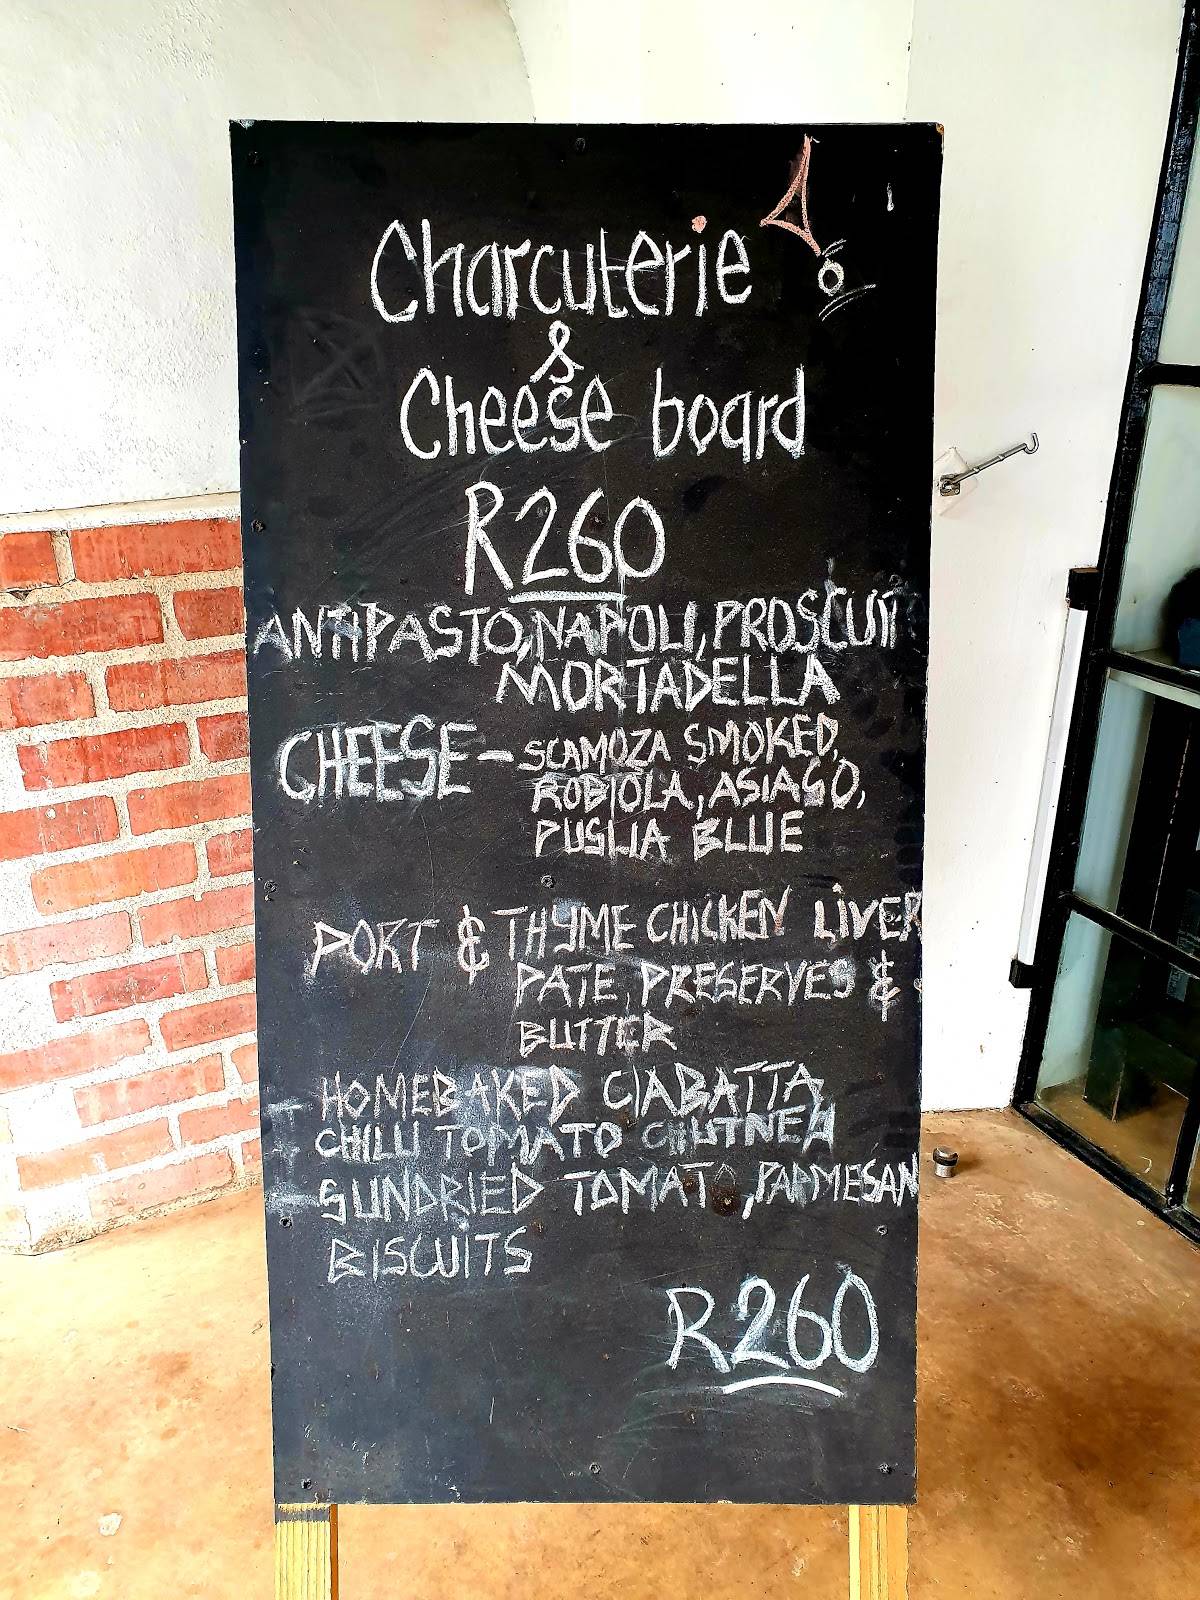 Charcuterie
&
Cheese board
R260
ANTIPASTO, NAPOLI, PROSCUTI
MORTADELLA
CHEESE - SCAMOZA SMOKED,
ROBIOLA, ASIAGO,
PUGLIA BLUE
PORT & THYME CHICKEN LIVER
PATE, PRESERVES &
BUTTER
HOMEBAKED CIABATTA,
CHILLI TOMATO CHUTNEY
SUNDRIED TOMATO, PARMESAN
BISCUITS
R260